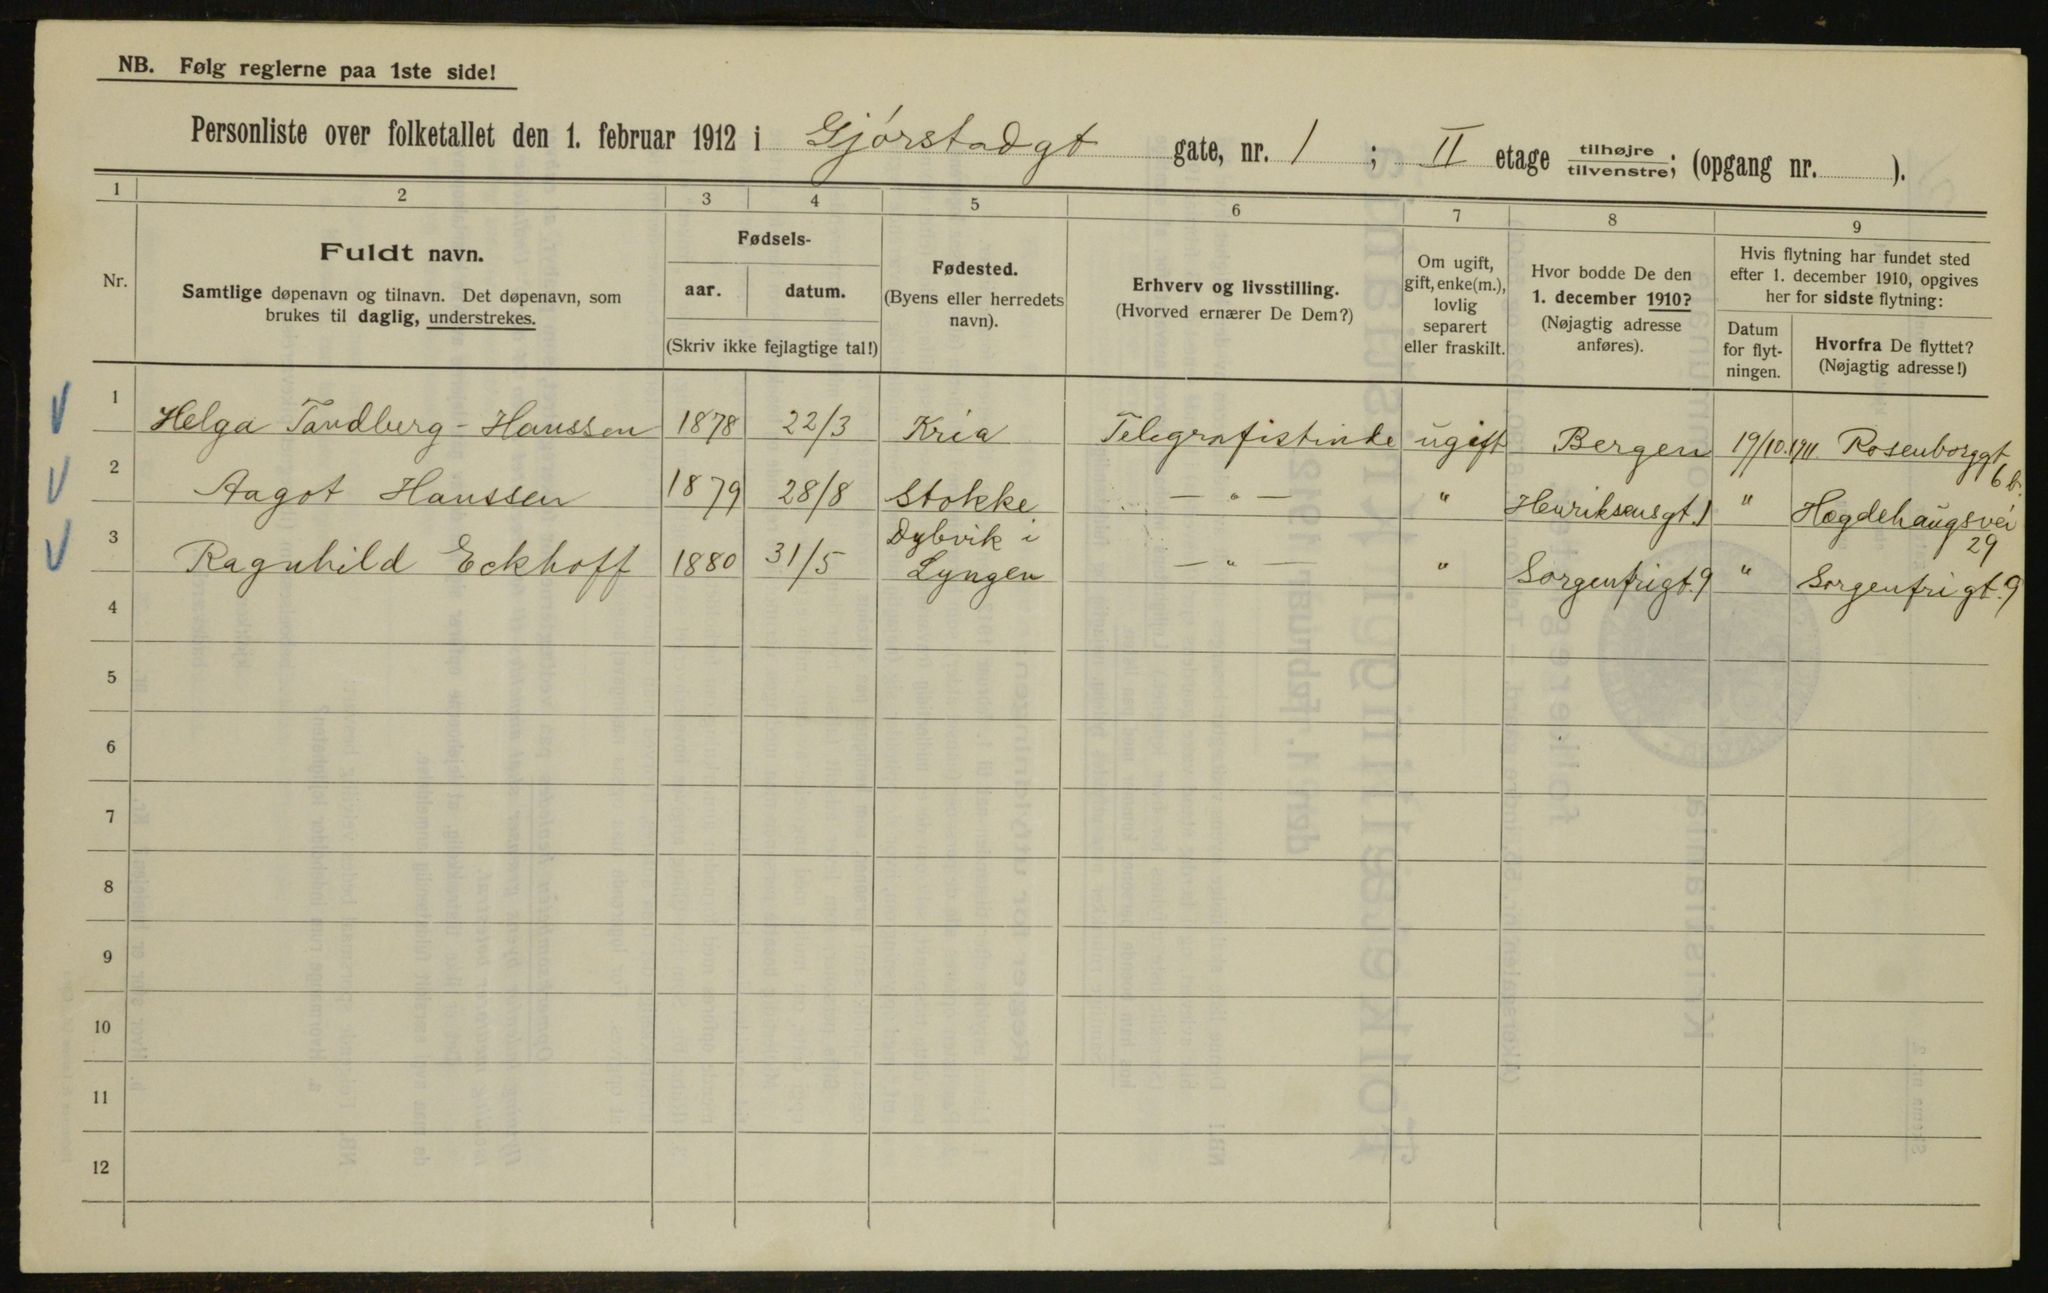 NB. Følg reglerne paa 1ste side!
Personliste over folketallet den 1. februar 1912 i Gjørstadgt gate, nr. 1 ; II etage tilhøjre/tilvenstre; (opgang nr. ).
1 2 3 4 5 6 7 8 9
Nr.
Fuldt navn.
Samtlige døpenavn og tilnavn. Det døpenavn, som
brukes til daglig, understrekes.
Fødsels-
aar. datum.
(Skriv ikke fejlagtige tal!)
Fødested.
(Byens eller herredets
navn).
Erhverv og livsstilling.
(Hvorved ernærer De Dem?)
Om ugift,
gift, enke(m.),
lovlig
separert
eller fraskilt.
Hvor bodde De den
1. december 1910?
(Nøjagtig adresse
anføres).
Hvis flytning har fundet sted
efter 1. december 1910, opgives
her for sidste flytning:
Datum
for flyt-
ningen.
Hvorfra De flyttet?
(Nøjagtig adresse!)
1 Helga Tandberg-Hanssen 1878 22/3 Kria Telegrafistinde ugift Bergen 19/10.1911 Rosenborggt
6 b.
2 Aagot Hanssen 1879 28/8 Stokke — " — " Henriksensgt. 1 " Hægdehaugsvei
29
3 Ragnhild Eckhoff 1880 31/5 Dybvik i
Lyngen — " — " Sorgenfrigt. 9 " Sorgenfrigt. 9
4
5
6
7
8
9
10
11
12